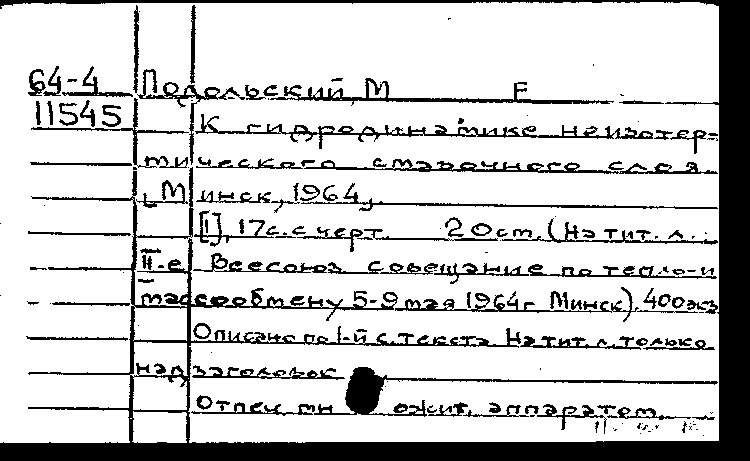 64-4 Подольский, М Е
11545 К гидродинамике неизотер-
мического смазочного слоя.
[Минск, 1964].
[1], 17с. с черт. 20 см. (На тит. л.:
II-е Всесоюз совещание по тепло-и
массообмену 5-9 мая 1964г Минск). 400 экз
Описано по 1-й с. текста На тит. л. только
надзаголовок
Отпеч. мн ожит. аппаратом.